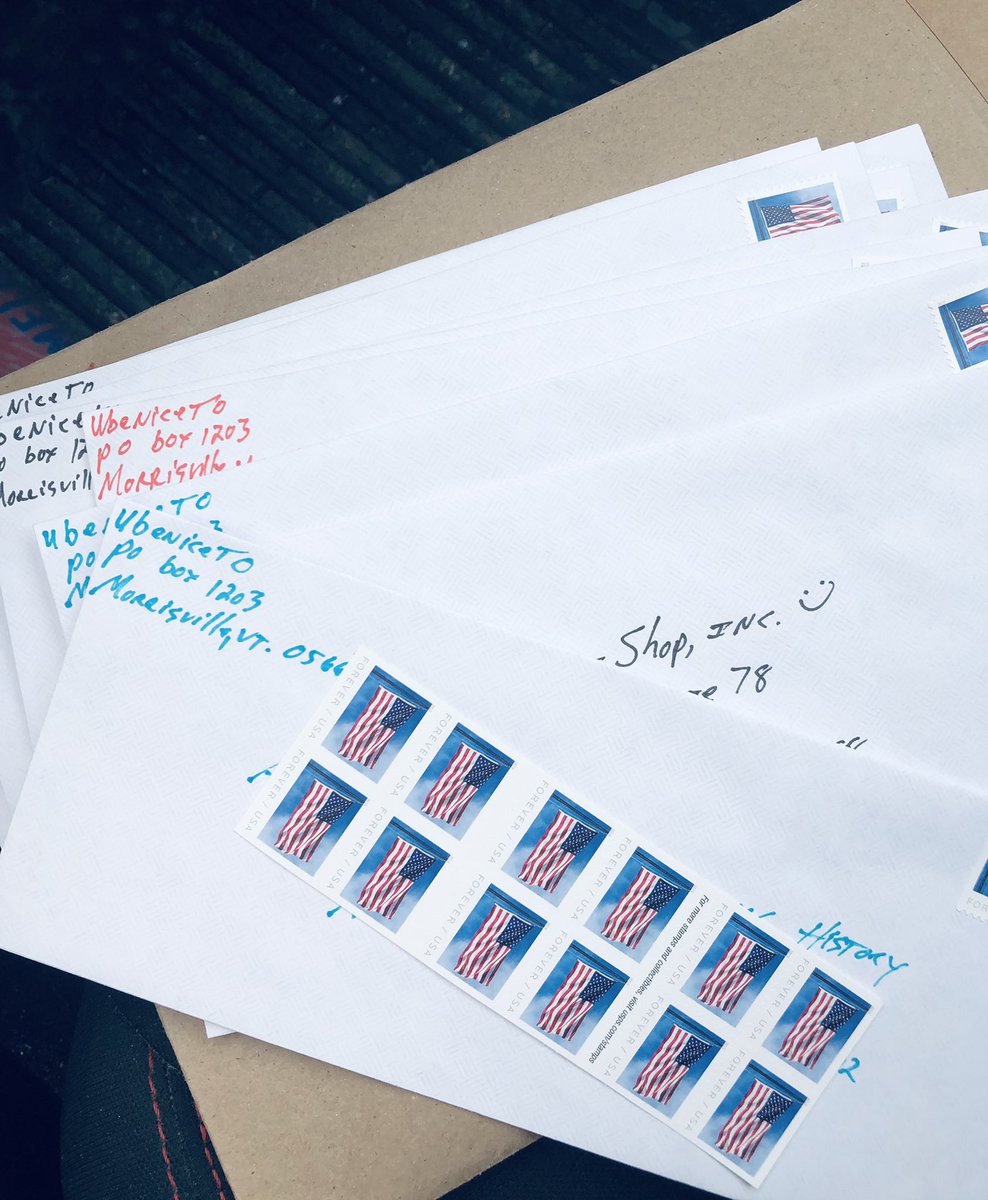 NiceTO
beNice
box 12
Morrisvill
UbeNiceTO
po box 1203
Morrisvill
Ube
TO
po
UbeNiceTO
Po box 1203
Morrisville, VT. 0566
Shop, INC. :)
78
FOREVER / USA
FOREVER / USA
FOREVER / USA
FOREVER / USA
FOREVER / USA
FOREVER / USA
FOREVER / USA
FOREVER / USA
For more stamps and collectibles, visit usps.com/stamps
FOREVER / USA
FOREVER / USA
FOREVER / USA
FOREVER / USA
HISTORY
2
FOR